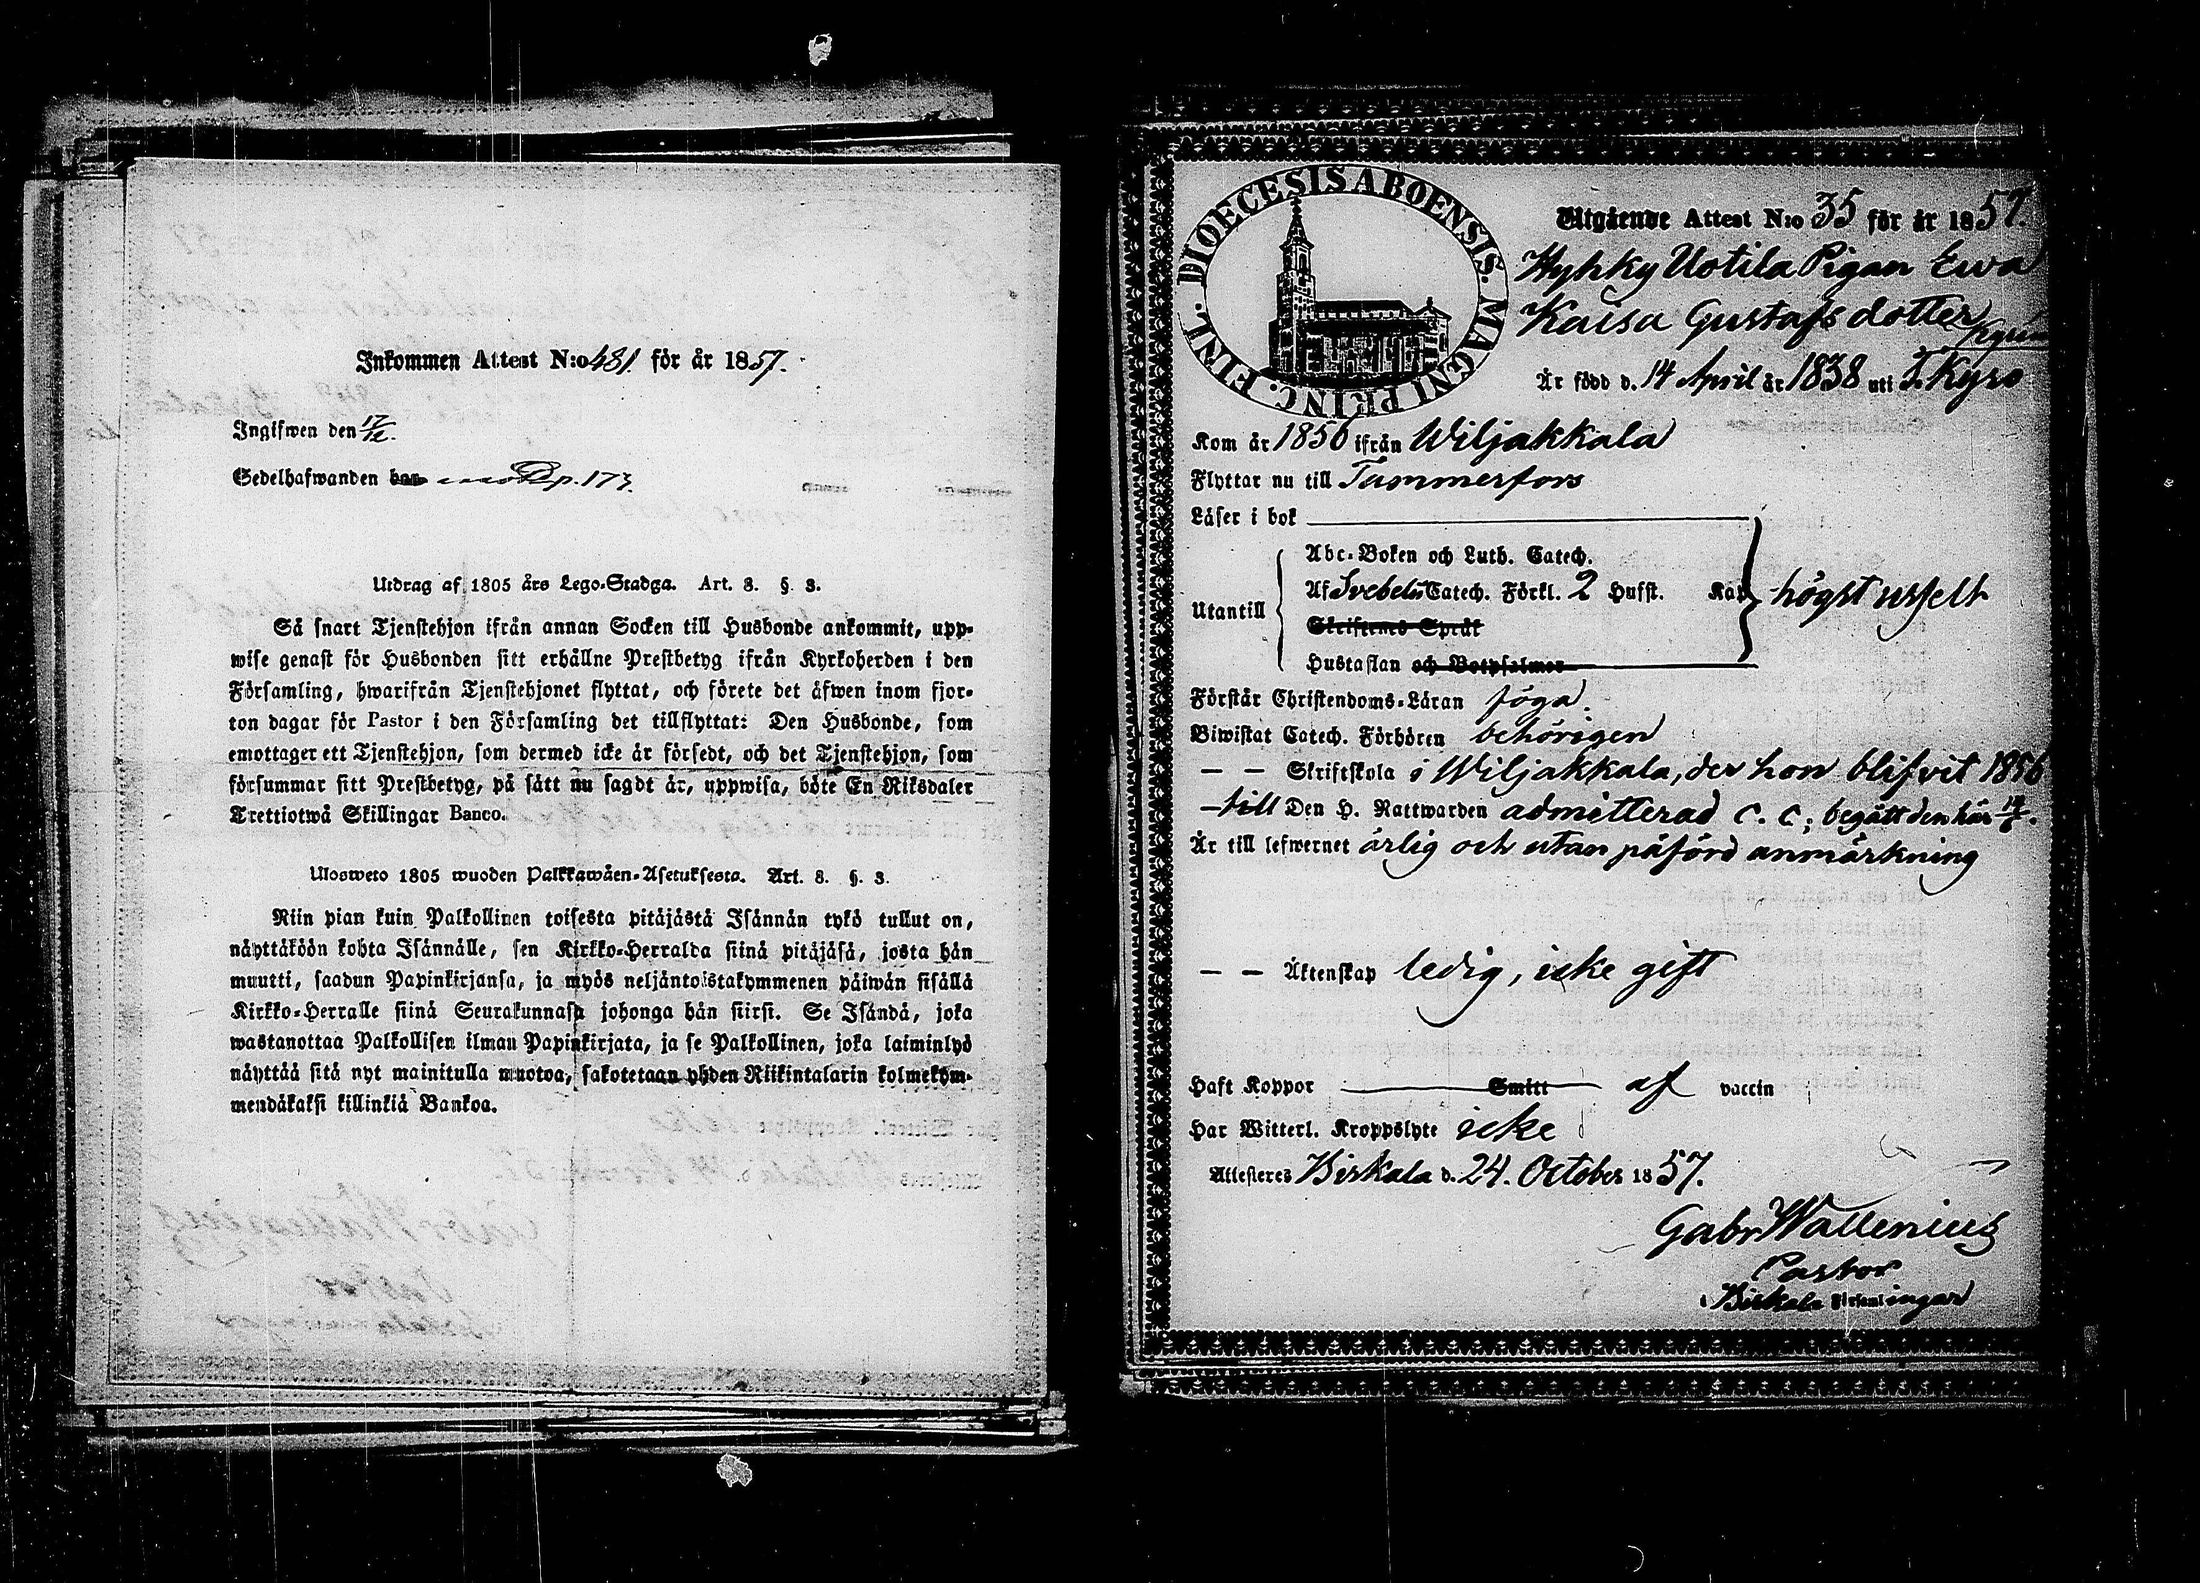 Inkommen Attest N:o 481 för år 1857.
Ingifwen den 17/12.
Sedelhafwanden p. 173.
Utdrag af 1805 års Lego-Stadga. Art. 8. §. 3.
Så snart Tjenstehjon ifrån annan Socken till Husbonde ankommit, upp-
wise genast för Husbonden sitt erhållne Prestbetyg ifrån Kyrkoherden i den
Församling, hwarifrån Tjenstehjonet flyttat, och förete det äfwen inom fjor-
ton dagar för Pastor i den Församling det tillflyttat: Den Husbonde, som
emottager ett Tjenstehjon, som dermed icke är försedt, och det Tjenstehjon, som
försummar sitt Prestbetyg, på sätt nu sagdt är, uppwisa, böte En Riksdaler
Trettiotwå Skillingar Banco.
Ulosweto 1805 wuoden Palkkawäen-Asetuksesta. Art. 8. §. 3.
Niin pian kuin Palkollinen toisesta pitäjästä Isännän tykö tullut on,
näyttäköön kohta Isännälle, sen Kirkko-Herralda siinä pitäjäsä, josta hän
muutti, saadun Papinkirjansa, ja myös neljäntoistakymmenen päiwän sisällä
Kirkko-Herralle siinä Seurakunnasa johonga hän siirsi. Se Isändä, joka
wastanottaa Palkollisen ilman Papinkirjata, ja se Palkollinen, joka laiminlyö
näyttää sitä nyt mainitulla muotoa, sakotetaan yhden Riikintalarin kolmekym-
mendäkaksi killinkiä Bankoa.
DIOECESIS ABOENSIS. MAGNI PRINC. FINL.
Utgående Attest N:o 35 för år 1857.
Hyhky Uotila Pigan Ewa
Kaisa Gustafsdotter
Är född d. 14 April år 1838 uti T. Kyro
Kom år 1856 ifrån Wiljakkala
Flyttar nu till Tammerfors
Läser i bok
Utantill
Abc-Boken och Luth. Catech.
Af Svebelii Catech. Förkl. 2 Hufst. Kap. högst uselt
Skriftens Språk
Hustaflan och Botpsalmer
Förstår Christendoms-Läran föga.
Biwistat Catech. Förhören behörigen
— — Skriftskola i Wiljakkala, der hon blifvit 1856
— till Den H. Nattwarden admitterad c. c; begått den här
Är till lefwernet ärlig och utan påförd anmärkning
— — Äktenskap ledig, icke gift
Haft Koppor Smitt af vaccin
Har Witterl. Kroppslyte icke
Attesteres Birkala d. 24. October 1857.
Gabr Wallenius
Pastor
i Birkala Församlingar